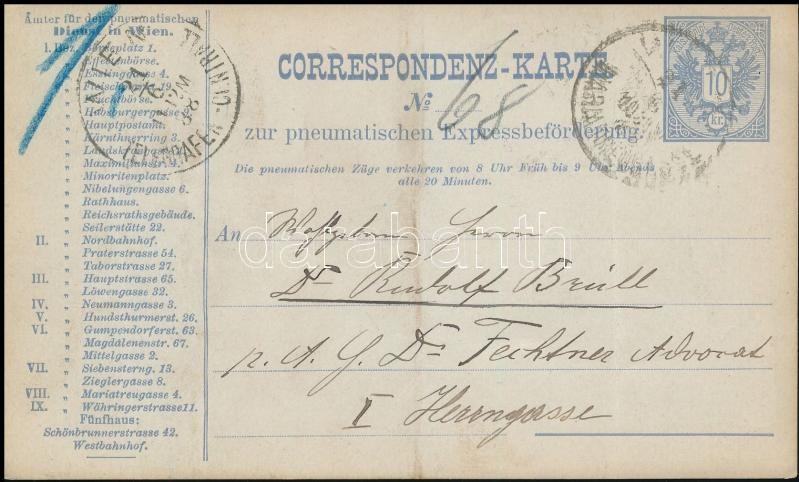 Ämter für den pneumatischen
Dienst in Wien.
I. Bez. Börseplatz 1.
" Effectenbörse.
" Esslinggasse 4.
" Fleischmarkt 19.
" Fruchtbörse.
" Habsburgergasse
" Hauptpostamt.
" Kärnthnerring 3.
" Landskrongasse
" Maximilianstr. 4.
" Minoritenplatz.
" Nibelungengasse 6.
" Rathhaus.
" Reichsrathsgebäude.
" Seilerstätte 22.
II. Nordbahnhof.
" Praterstrasse 54.
" Taborstrasse 27.
III. Hauptstrasse 65.
" Löwengasse 32.
IV. Neumanngasse 3.
V. Hundsthurmerst. 26.
VI. Gumpendorferst. 63.
" Magdalenenstr. 67.
" Mittelgasse 2.
VII. Siebensterng. 13.
" Zieglergasse 8.
VIII. Mariatreugasse 4.
IX. Währingerstrasse 11.
Fünfhaus:
Schönbrunnerstrasse 42.
Westbahnhof.
WIEN
CENTRALE
CORRESPONDENZ-KARTE
10
kr.
No. 68
zur pneumatischen Expressbeförderung.
Die pneumatischen Züge verkehren von 8 Uhr Früh bis 9 Uhr Abends
alle 20 Minuten.
An Wohlgeboren Herrn
Dr Rudolf Brüll
p. A. H. Dr Fechtner Advocat
I Herrengasse
darabanth